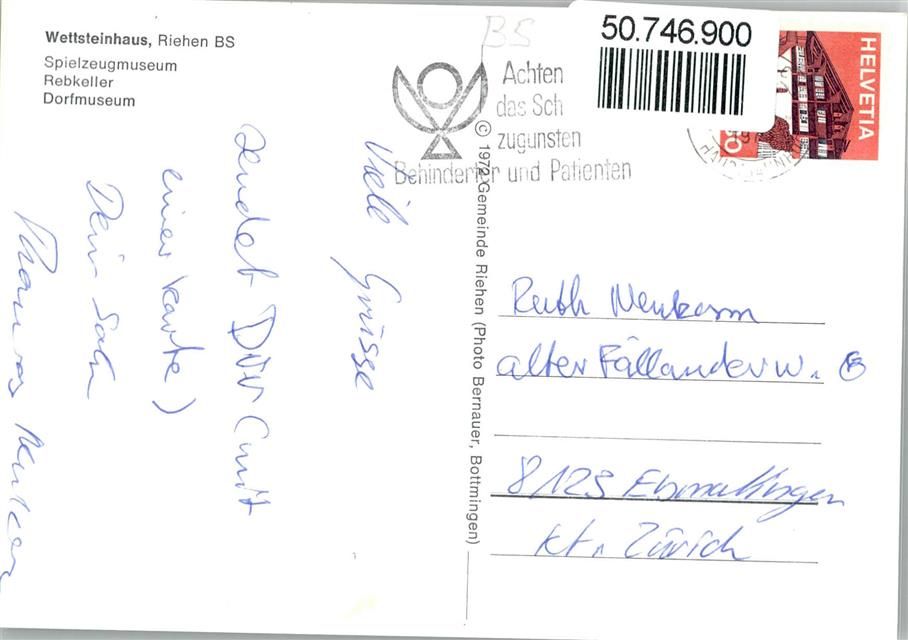 Wettsteinhaus, Riehen BS
Spielzeugmuseum
Rebkeller
Dorfmuseum
BS
50.746.900
HELVETIA
Achten
das Sch
zugunsten
Behinderter und Patienten
© 1972 Gemeinde Riehen (Photo Bernauer, Bottmingen)
Viele Grüsse
sendet Dir (mit
einer Karte)
Dein Sohn
Thomas
Ruth
alter Fällanderw. 6
8123 Ebmattingen
Kt. Zürich